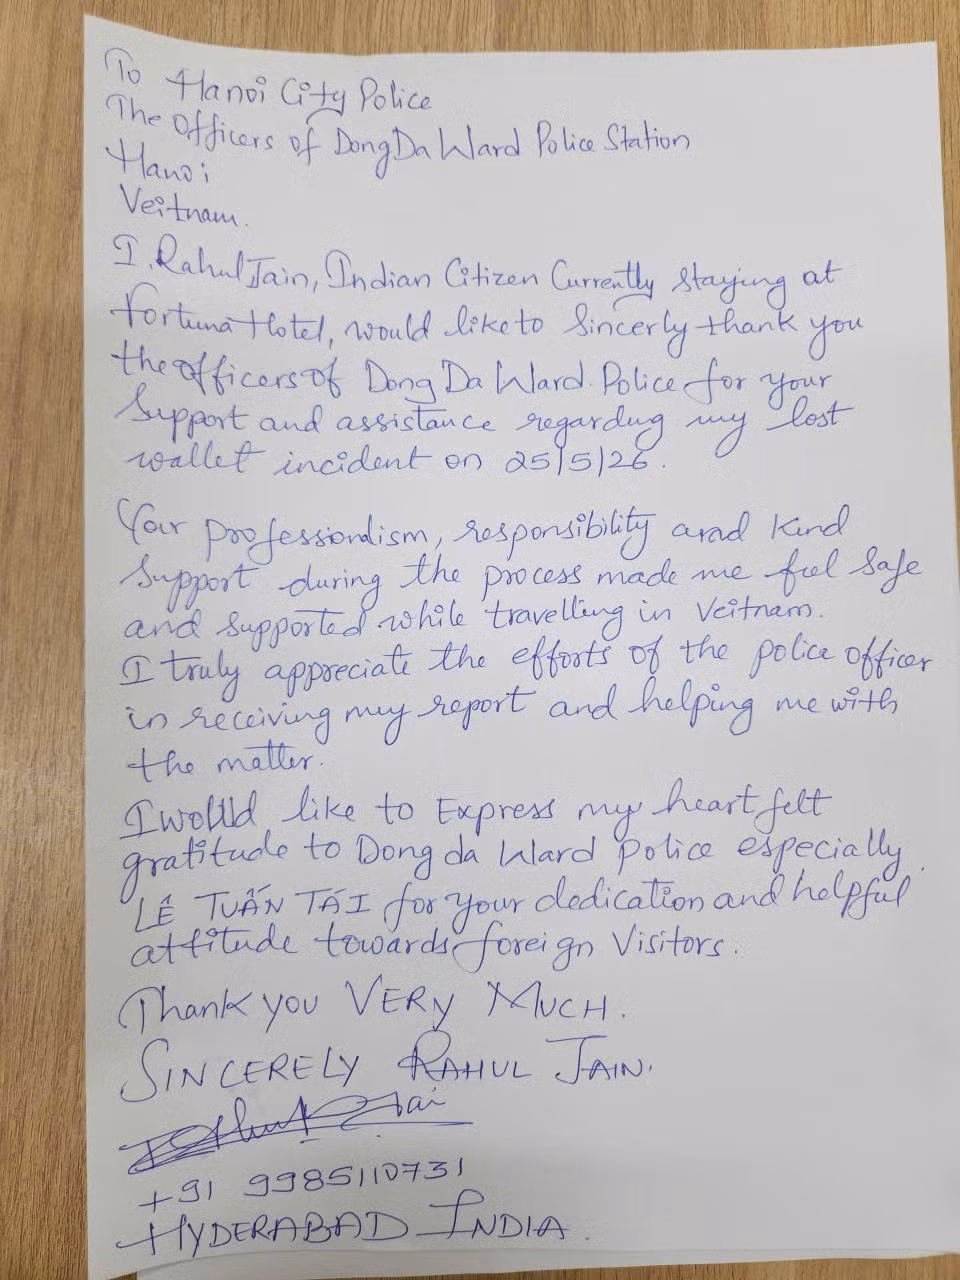 To Hanoi City Police
The Officers of Dong Da Ward Police Station
Hanoi
Veitnam.
I, Rahul Jain, Indian Citizen Currently staying at
Fortuna Hotel, would like to Sincerly thank you
the officers of Dong Da Ward Police for your
Support and assistance regardng my lost
wallet incident on 25/5/26.
Your professionalism, responsibility and Kind
Support during the process made me feel Safe
and supported while travelling in Veitnam.
I truly appreciate the efforts of the police officer
in receiving my report and helping me with
the matter.
I would like to Express my heart felt
gratitude to Dong da Ward Police especially
LÊ TUẤN TÁI for your dedication and helpful
attitude towards foreign Visitors.
Thank you VERY MUCH.
SINCERELY RAHUL JAIN.
+91 9985110731
HYDERABAD INDIA.